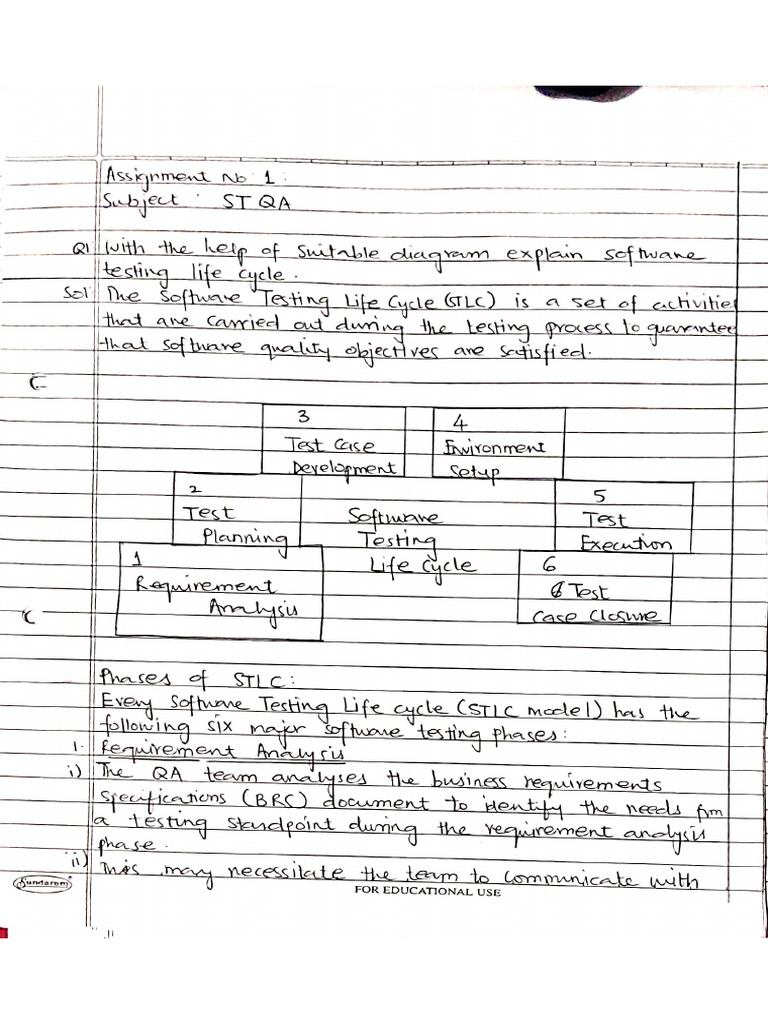 Assignment No 1:
Subject : ST QA
Q1 With the help of suitable diagram explain software
testing life cycle.
Sol The Software Testing Life Cycle (STLC) is a set of activities
that are carried out during the testing process to guarantee
that software quality objectives are satisfied.
3
Test Case
Development
4
Environment
Setup
2
Test
Planning
Software
Testing
Life Cycle
5
Test
Execution
1
Requirement
Analysis
6
Test
Case Closure
Phases of STLC:
Every Software Testing Life cycle (STLC model) has the
following six major software testing phases:
1. Requirement Analysis
i) The QA team analyses the business requirements
specifications (BRS) document to identify the needs frm
a testing standpoint during the requirement analysis
phase.
ii) This may necessitate the team to communicate with
Sundaram
FOR EDUCATIONAL USE